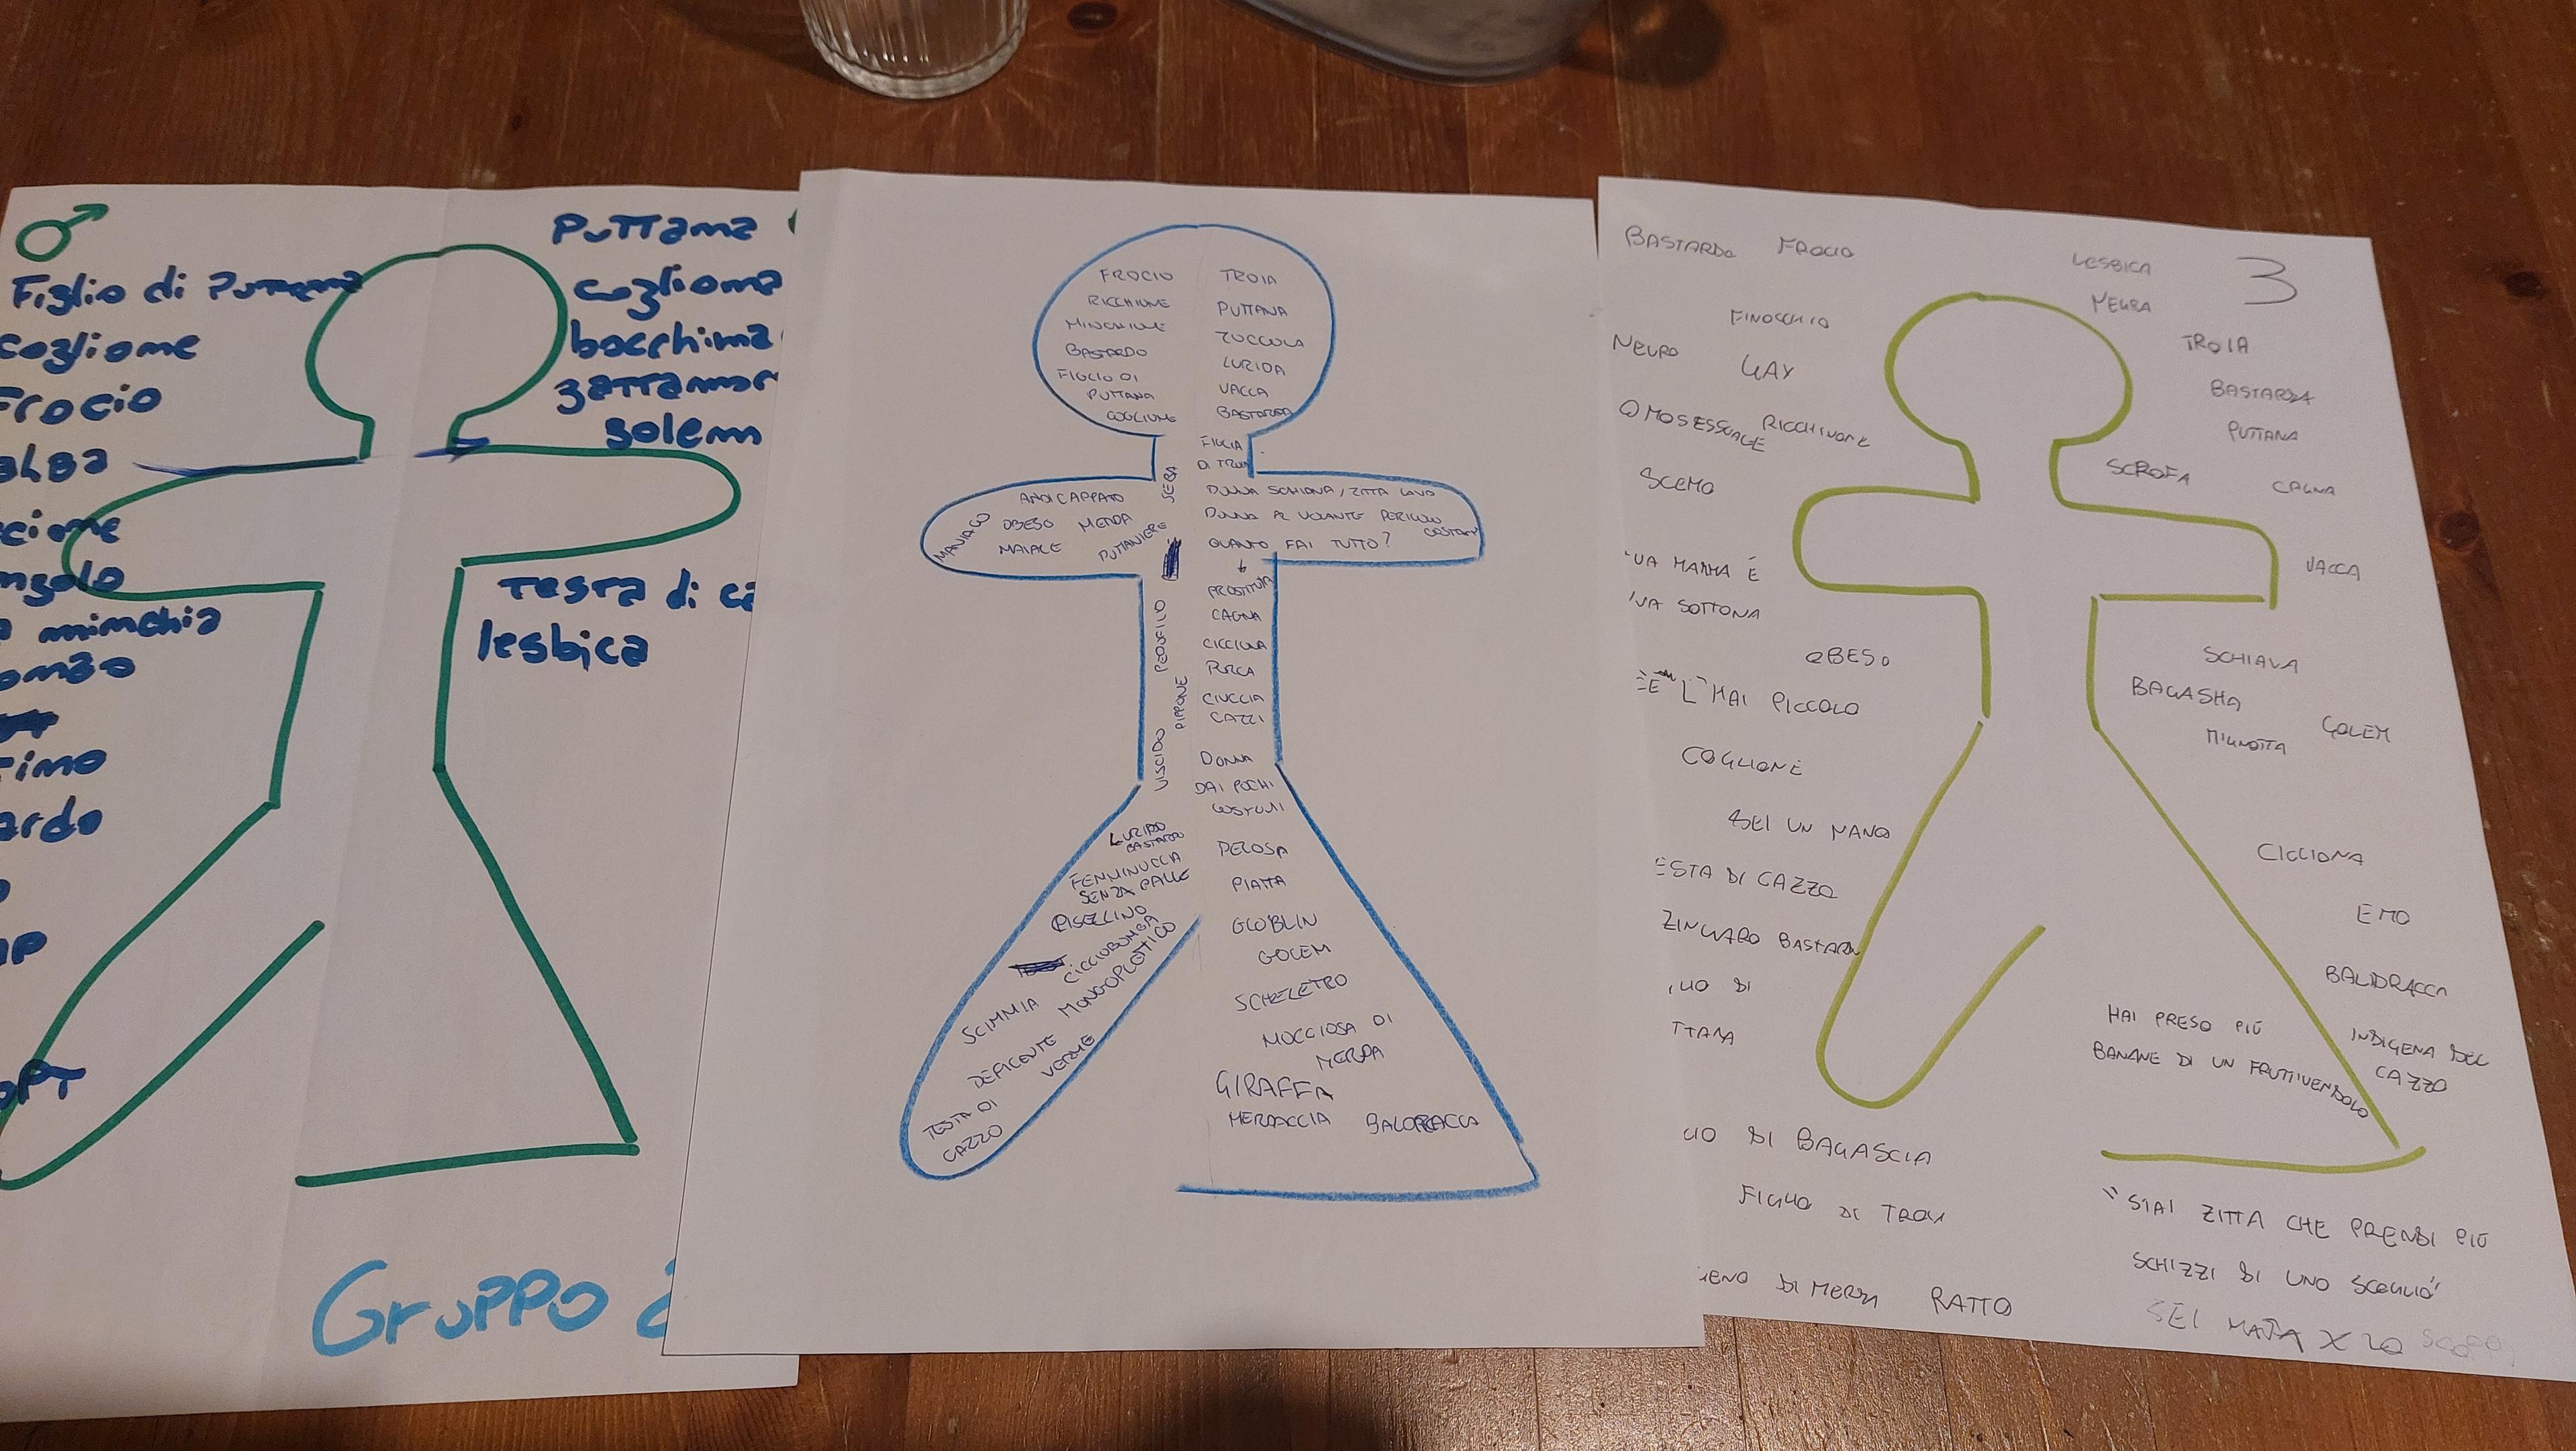 Figlio di Puttana
coglione
Frocio
alba
cione
ngolo
a minchia
omao
timo
ardo
Puttana
cogliona
bocchina
golem
Testa di ca
lesbica
Gruppo 2
FROCIO
RICCHIONE
MINCHIONE
BASTARDO
FIGLIO DI
PUTTANA
COGLIONE
TROIA
PUTTANA
ZOCCOLA
LURIDA
VACCA
BASTARDA
FIGLIA
DI TROIA
SEGA
ANDICAPPATO
OBESO MERDA
MAIALE
MANIACO
PUTTANIERE
DONNA SCHIAVA/ZITTA LAVA
DONNA AL VOLANTE PERICOLO
COSTANT
QUANTO FAI TUTTO?
PROSTITUTA
CAGNA
CICCIONA
PORCA
CIUCCIA
CAZZI
PEDOFILO
PIPPONE
VISCIDO
DONNA
DAI POCHI
COSTUMI
LURIDO
BASTARDO
FEMMINUCCIA
SENZA PALLE
PISELLINO
CICCIOBOMBA
MONGOPLOTTICO
SCIMMIA
DEFICENTE
VERME
TESTA DI
CAZZO
PELOSA
PIATTA
GOBLIN
GOLEM
SCHELETRO
MOCCIOSA DI
MERDA
GIRAFFA
MERDACCIA BALDRACCA
BASTARDO FROCIO
FINOCCHIO
NEGRO GAY
OMOSESSUALE RICCHIONE
SCEMO
UA MAMMA È
UA SOTTONA
OBESO
"E L'HAI PICCOLO
COGLIONE
SEI UN NANO
ESTA DI CAZZO
ZINGARO BASTARDO
LIO DI
TTANA
LIO DI BAGASCIA
FIGLIO DI TROIA
IENO DI MERDA RATTO
LESBICA 3
NEGRA
TROIA
BASTARDA
PUTTANA
SCROFA
CAGNA
VACCA
SCHIAVA
BAGASHA
GOLEM
MIGNOTTA
CICCIONA
EMO
BALDRACCA
HAI PRESO PIÙ
BANANE DI UN FRUTTIVENDOLO
INDIGENA DEL
CAZZO
"STAI ZITTA CHE PRENDI PIÙ
SCHIZZI DI UNO SCOGLIO"
SEI NATA X LO